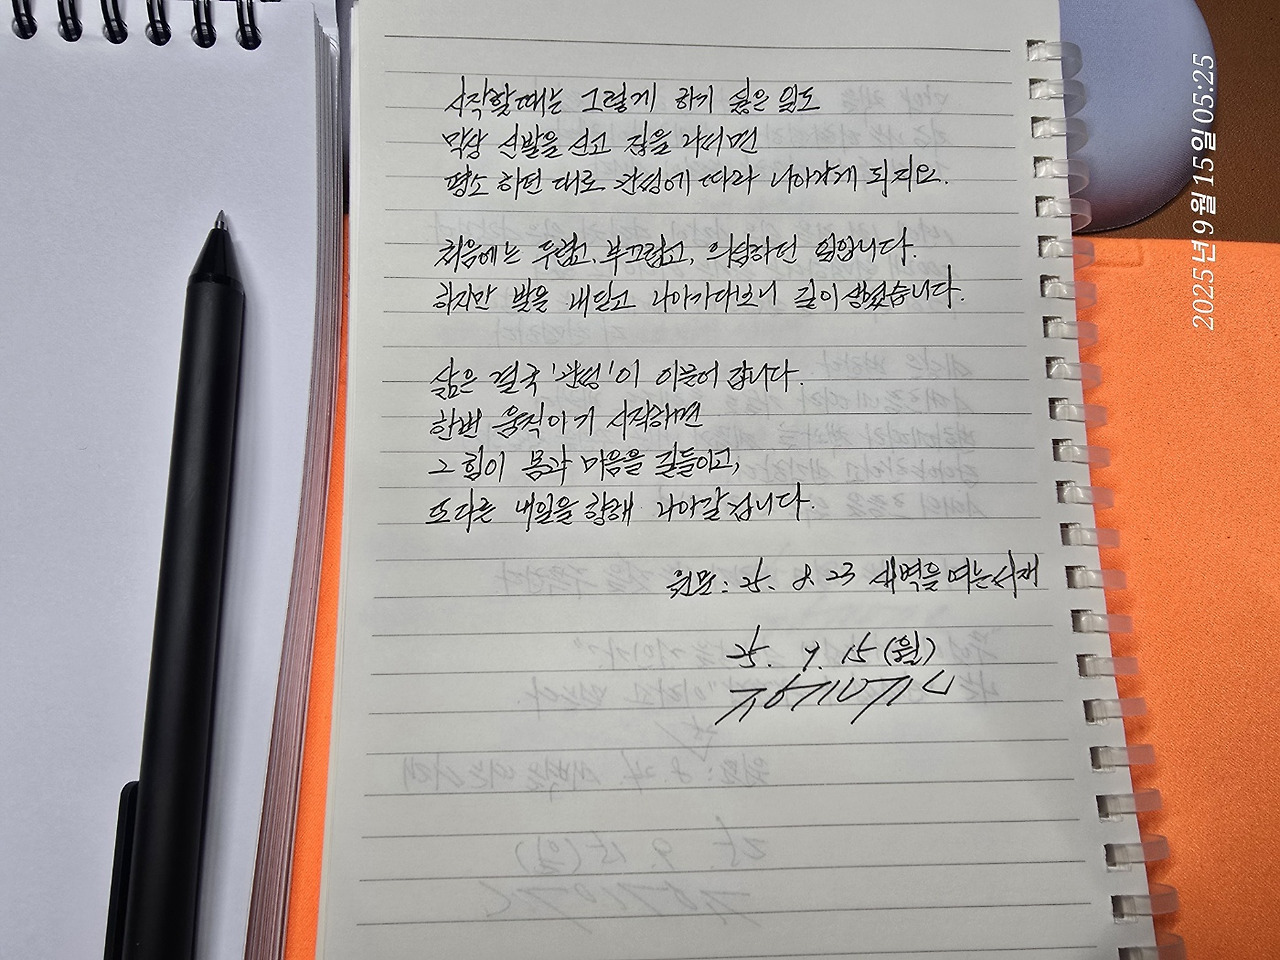 시작할때는 그렇게 하기 싫은 일도
막상 신발을 신고 집을 나서면
평소 하던 대로 관성에 따라 나아가게 되지요.
처음에는 두렵고, 부끄럽고, 의심하던 일입니다.
하지만 발을 내딛고 나아가다보니 길이 생겼습니다.
삶은 결국 '관성'이 이끌어 갑니다.
한번 움직이기 시작하면
그 힘이 몸과 마음을 길들이고,
또다른 내일을 향해 나아갈 겁니다.
원문: 25. 8. 23 새벽을 여는 서재
25. 9. 15 (월)
2025년 9월 15일 05:25